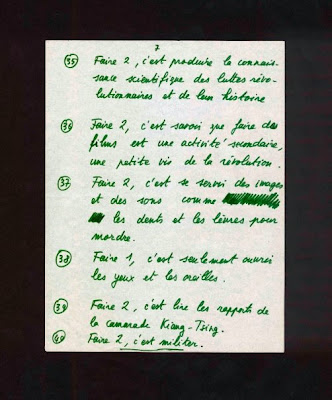 7
35 Faire 2, c'est produire la connais-
sance scientifique des luttes révo-
lutionnaires et de leur histoire
36 Faire 2, c'est savoir que faire des
films est une activité secondaire,
une petite vis de la révolution.
37 Faire 2, c'est se servir des images
et des sons comme
les dents et les lèvres pour
mordre.
38 Faire 1, c'est seulement ouvrir
les yeux et les oreilles.
39 Faire 2, c'est lire les rapports de
la camarade Kiang-Tsing.
40 Faire 2, c'est militer.